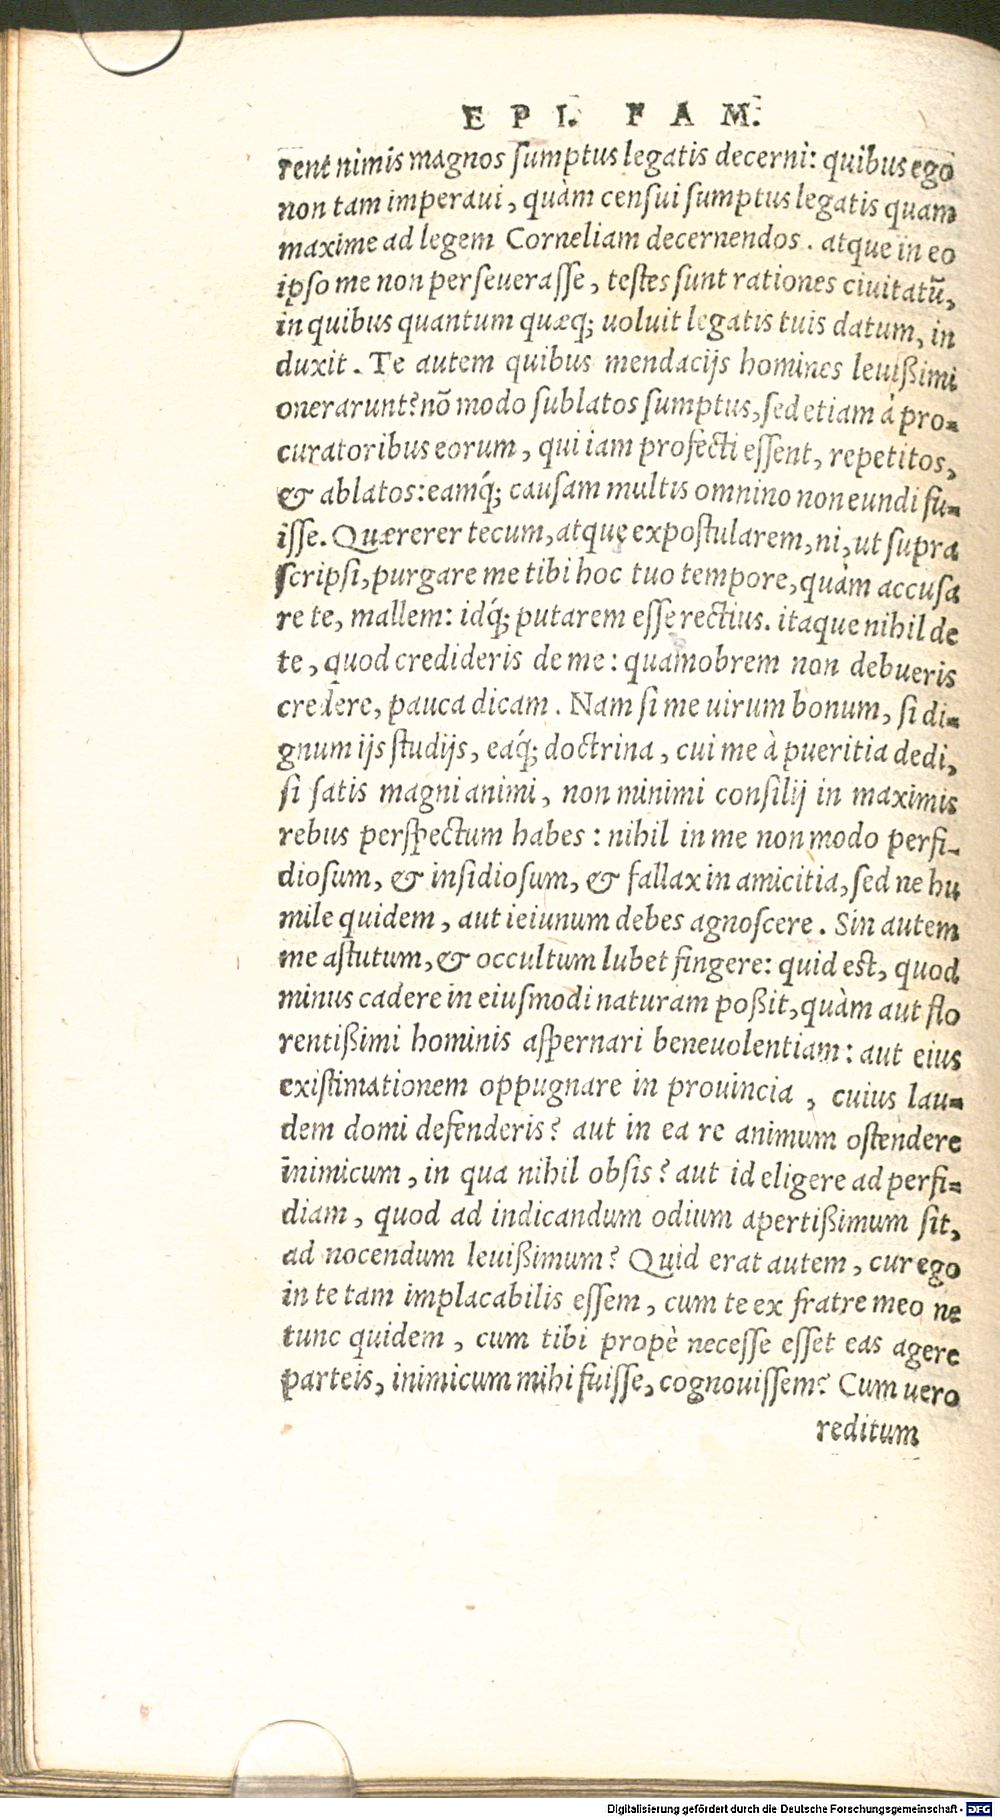 EPI. FAM.
rent nimis magnos sumptus legatis decerni: quibus ego
non tam imperaui, quàm censui sumptus legatis quam
maxime ad legem Corneliam decernendos. atque in eo
ipso me non perseuerasse, testes sunt rationes ciuitatũ,
in quibus quantum quæq; uoluit legatis tuis datum, in
duxit. Te autem quibus mendacijs homines leuißimi
onerarunt? nõ modo sublatos sumptus, sed etiam à pro-
curatoribus eorum, qui iam profecti essent, repetitos,
& ablatos: eamq́; causam multis omnino non eundi fu-
isse. Quærerer tecum, atque expostularem, ni, ut supra
scripsi, purgare me tibi hoc tuo tempore, quàm accusa
re te, mallem: idq́; putarem esse rectius. itaque nihil de
te, quod credideris de me: quamobrem non debueris
credere, pauca dicam. Nam si me uirum bonum, si di-
gnum ijs studijs, eaq́; doctrina, cui me à pueritia dedi,
si satis magni animi, non minimi consilij in maximis
rebus perspectum habes: nihil in me non modo perfi-
diosum, & insidiosum, & fallax in amicitia, sed ne hu
mile quidem, aut ieiunum debes agnoscere. Sin autem
me astutum, & occultum lubet fingere: quid est, quod
minus cadere in eiusmodi naturam poßit, quàm aut flo
rentißimi hominis aspernari beneuolentiam: aut eius
existimationem oppugnare in prouincia, cuius lau-
dem domi defenderis? aut in ea re animum ostendere
inimicum, in qua nihil obsis? aut id eligere ad perfi-
diam, quod ad indicandum odium apertißimum sit,
ad nocendum leuißimum? Quid erat autem, cur ego
in te tam implacabilis essem, cum te ex fratre meo ne
tunc quidem, cum tibi propè necesse esset eas agere
parteis, inimicum mihi fuisse, cognouissem? Cum uero
reditum
Digitalisierung gefördert durch die Deutsche Forschungsgemeinschaft - DFG